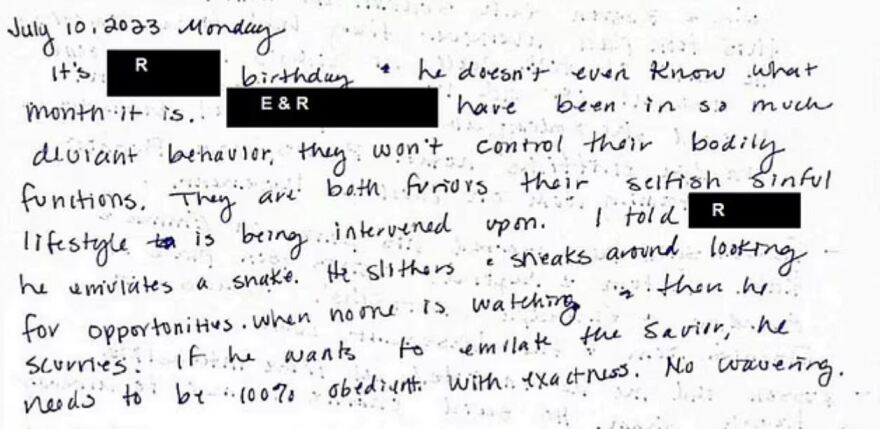 July 10, 2023 Monday
It's R birthday & he doesn't even know what
month it is. E & R have been in so much
deviant behavior, they won't control their bodily
functions. They are both furious their selfish sinful
lifestyle is being intervened upon. I told R
he emulates a snake. He slithers & sneaks around looking
for opportunities. When no one is watching & then he
scurries. If he wants to emilate the Savior, he
needs to be 100% obedient with exactness. No wavering.